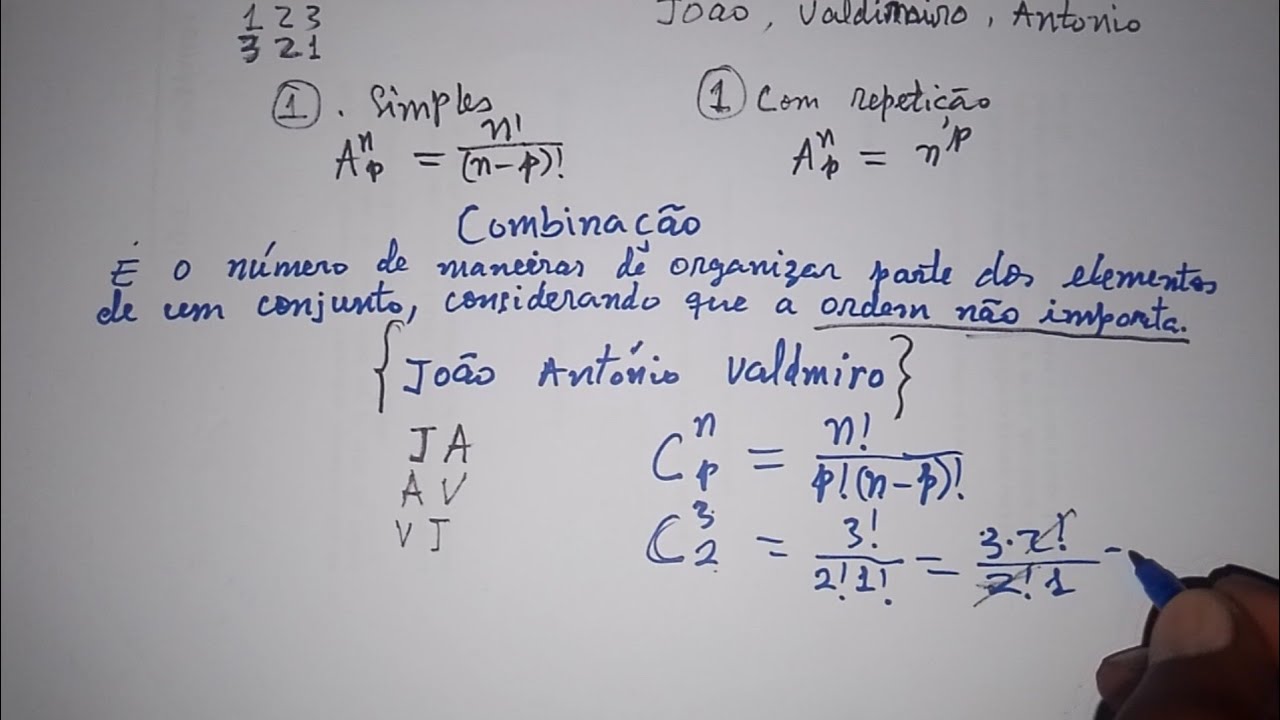 1 2 3
3 2 1
João, Valdimairo, Antonio
① . Simples
A^n_p = n!/(n-p)!
① Com repetição
A^n_p = n^p
Combinação
É o número de maneiras de organizar parte dos elementos
de um conjunto, considerando que a ordem não importa.
{João António Valdmiro}
J A
A V
V J
C^n_p = n!/p!(n-p)!
C^3_2 = 3!/2!1! = 3·2!/2!1 -